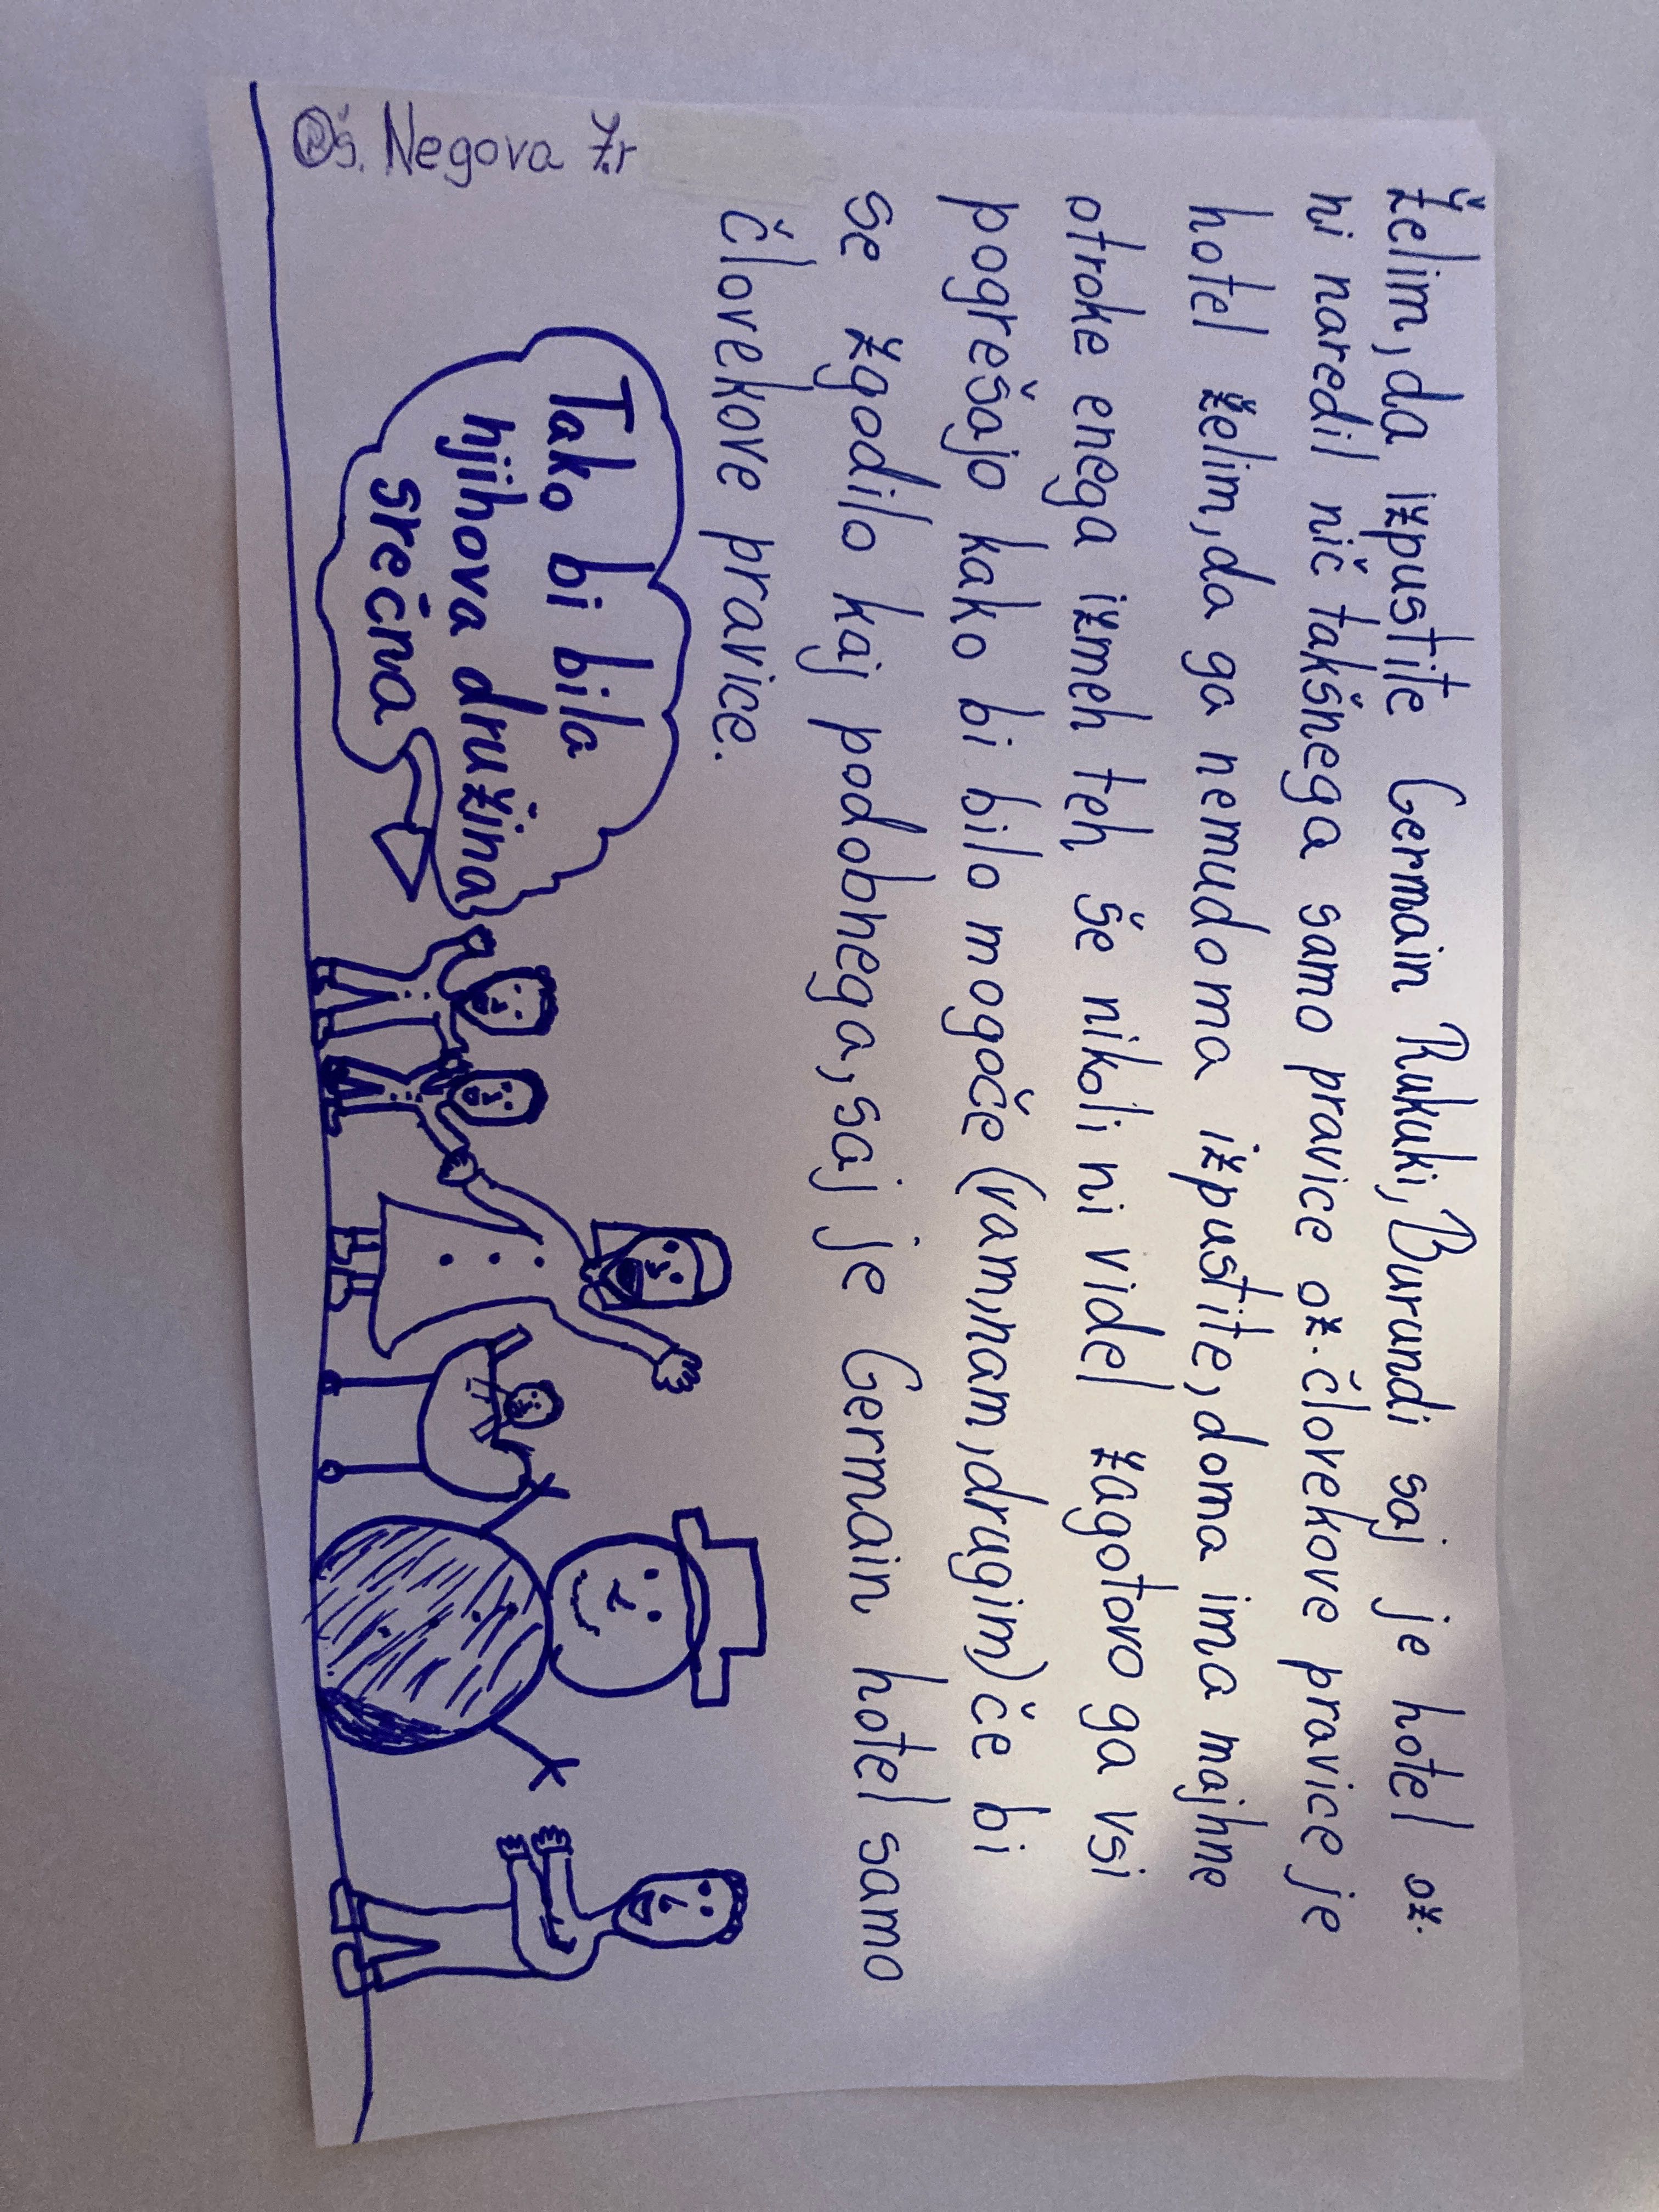 Želim, da izpustite Germain Rukuki, Burundi saj je hotel oz.
ni naredil nič takšnega samo pravice oz. človekove pravice je
hotel želim, da ga nemudoma izpustite, doma ima majhne
otroke enega izmeh teh še nikoli ni videl zagotovo ga vsi
pogrešajo kako bi bilo mogoče (vam, nam, drugim) če bi
se zgodilo kaj podobnega, saj je Germain hotel samo
človekove pravice.
Tako bi bila
njihova družina
srečna
Oš. Negova 7.r